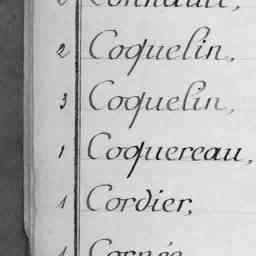 2 Coquelin,
3 Coquelin,
1 Coquereau,
1 Cordier,